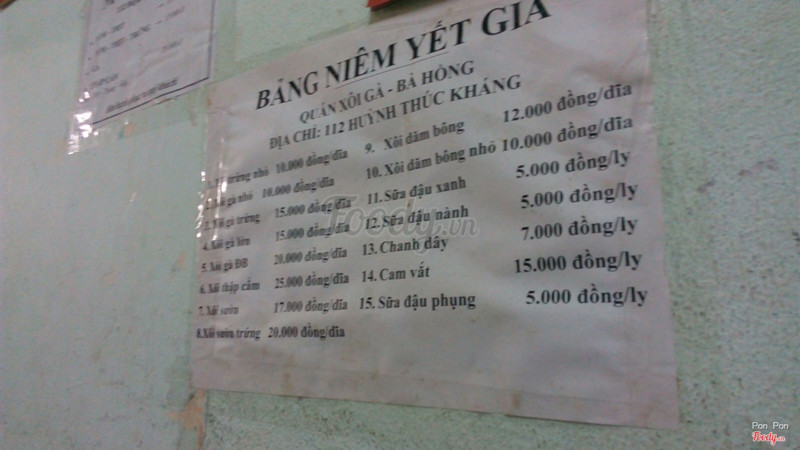 BẢNG NIÊM YẾT GIÁ
QUÁN XÔI GÀ - BÀ HỒNG
ĐỊA CHỈ: 112 HUỲNH THÚC KHÁNG
1. trứng nhỏ 10.000 đồng/dĩa
2. Xôi gà nhỏ 10.000 đồng/dĩa
3. Xôi gà trứng 15.000 đồng/dĩa
4. Xôi gà lớn 15.000 đồng/dĩa
5. Xôi gà ĐB 20.000 đồng/dĩa
6. Xôi thập cẩm 25.000 đồng/dĩa
7. Xôi sườn 17.000 đồng/dĩa
8. Xôi sườn trứng 20.000 đồng/dĩa
9. Xôi dăm bông 12.000 đồng/dĩa
10. Xôi dăm bông nhỏ 10.000 đồng/dĩa
11. Sữa đậu xanh 5.000 đồng/ly
12. Sữa đậu nành 5.000 đồng/ly
13. Chanh dây 7.000 đồng/ly
14. Cam vắt 15.000 đồng/ly
15. Sữa đậu phụng 5.000 đồng/ly
Foody.vn
Pon Pon
Foody.vn